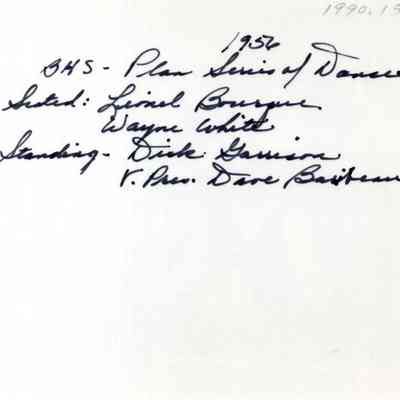 1990.15
1956
BHS - Plan Series of Dances
Seated: Lionel Bourque
Wayne White
Standing - Dick Garrison
V. Pres. Dave Barbeau